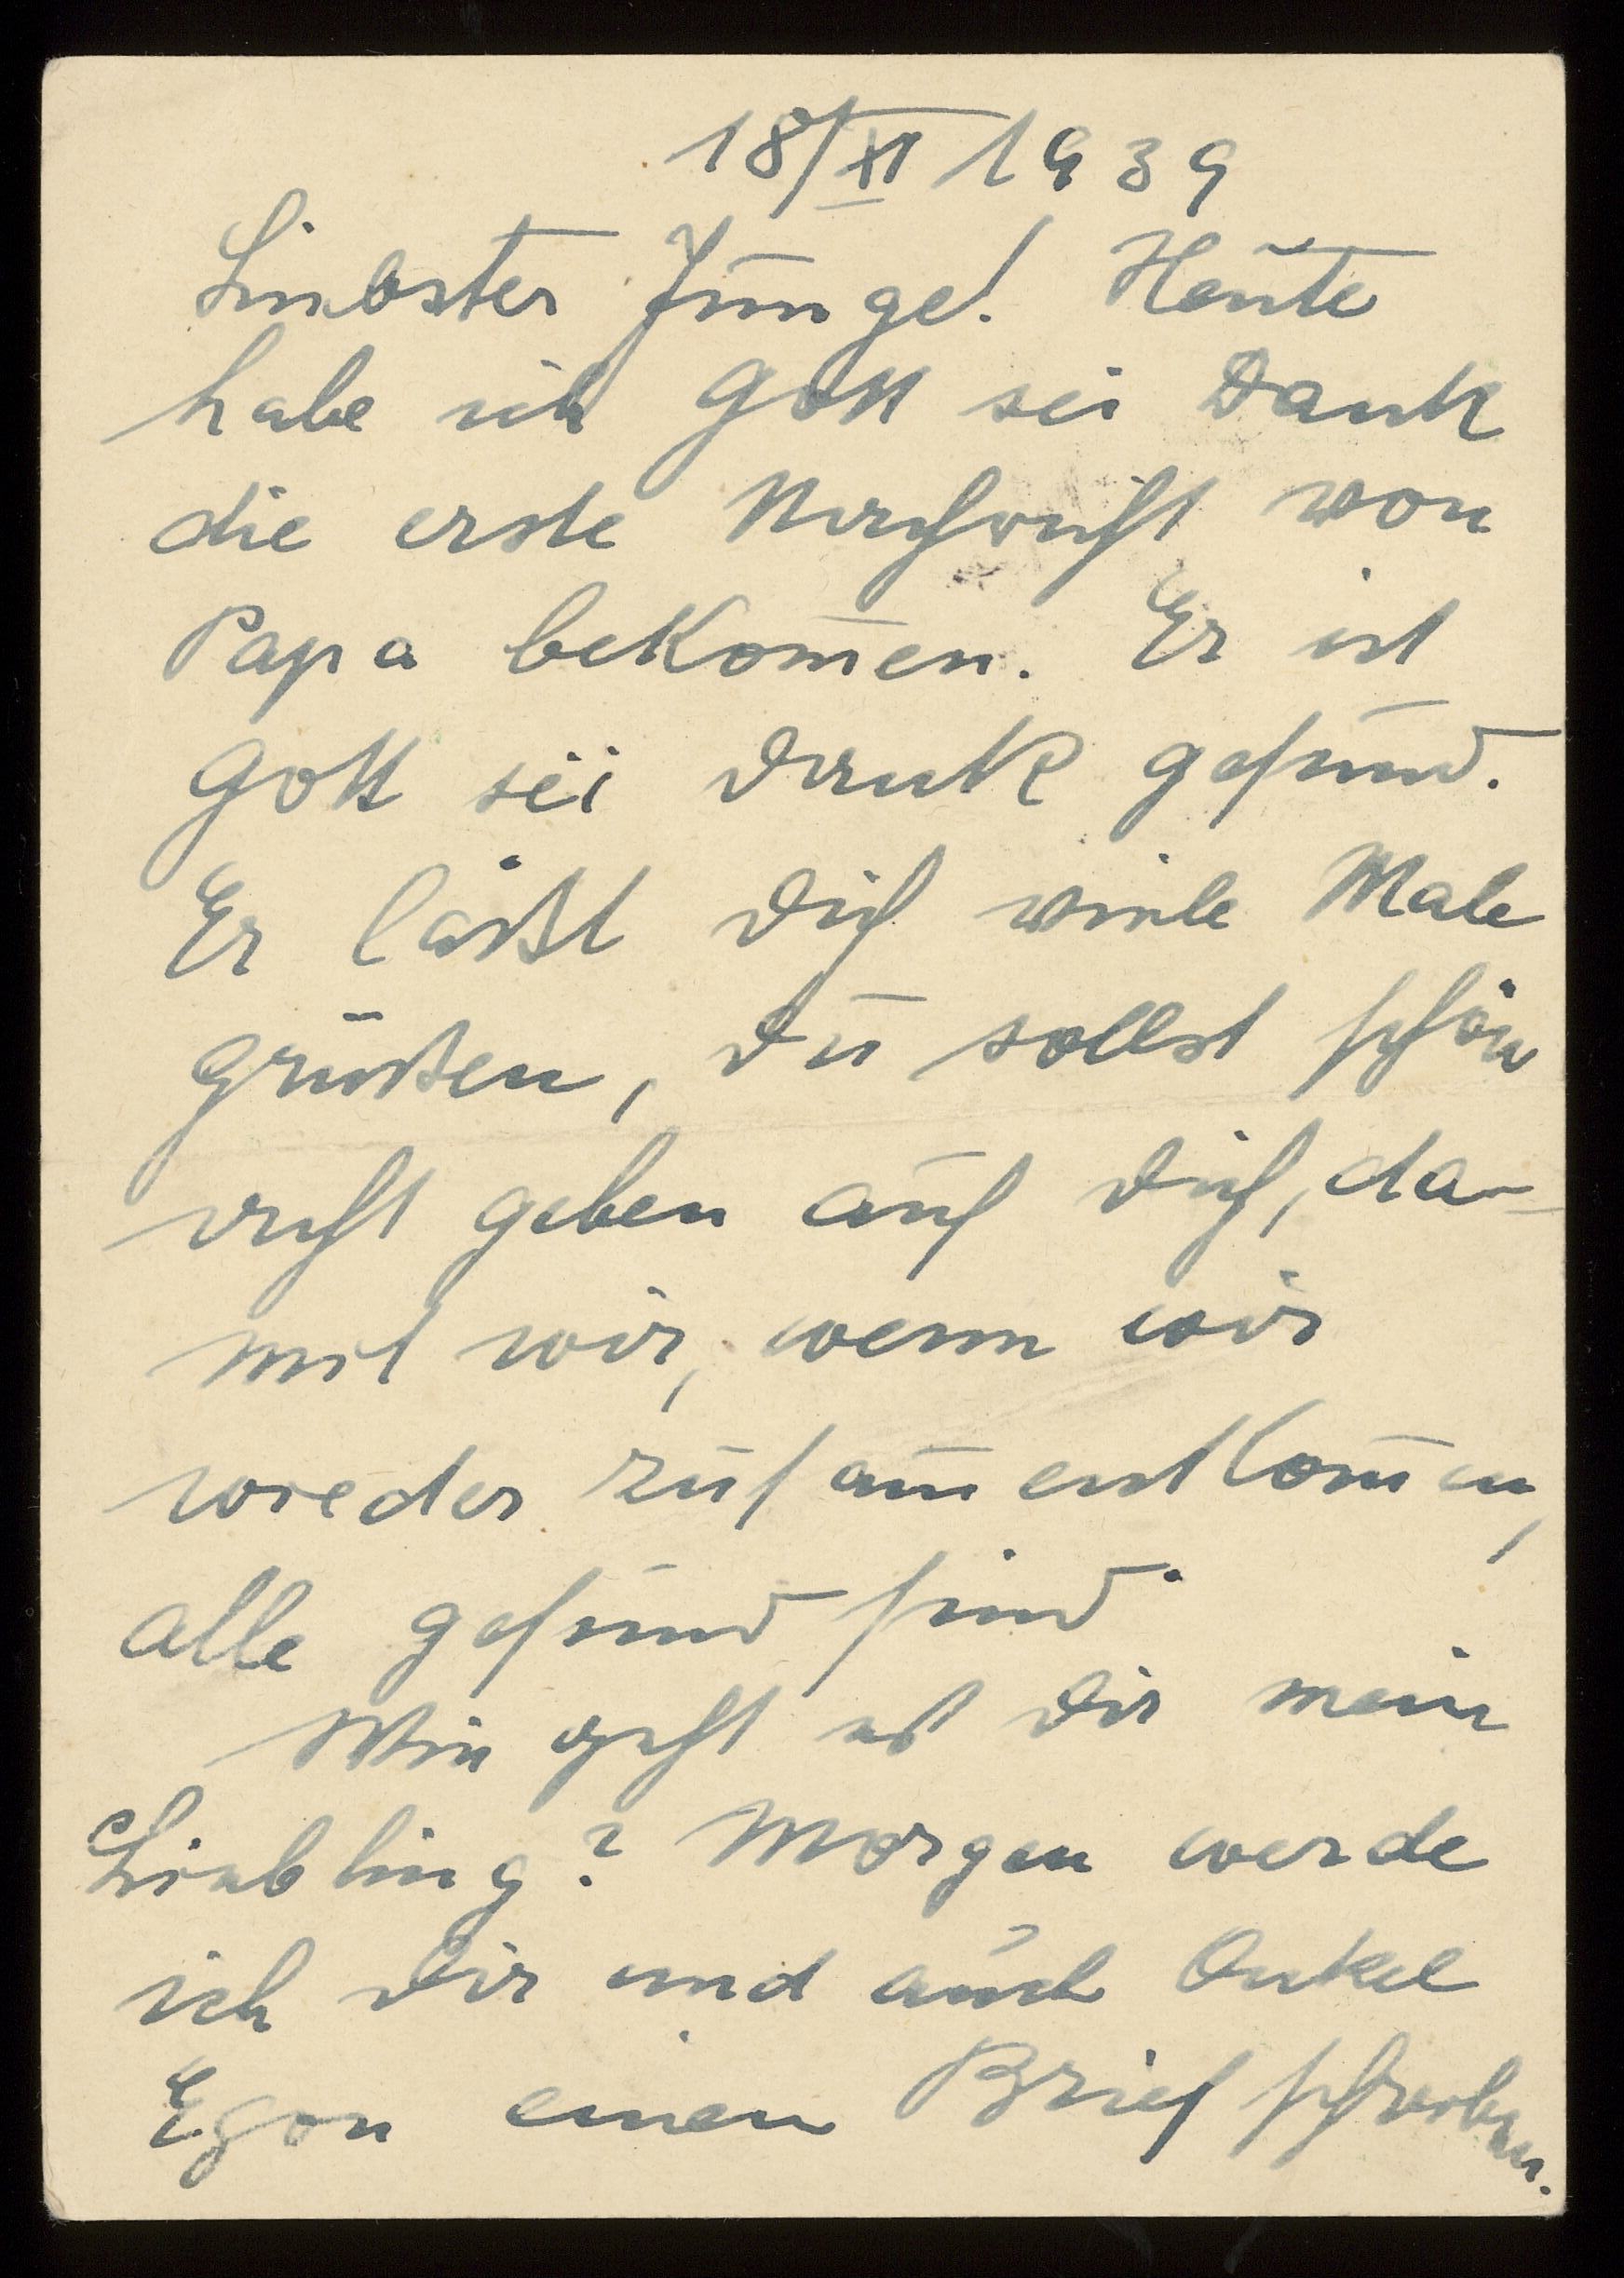 18/XI 1939
Liebster Junge! Heute
habe ich Gott sei Dank
die erste Nachricht von
Papa bekom̄en. Er ist
Gott sei Dank gesund.
Er läßt Dich viele Male
grüßen, Du sollst schön
acht geben auf Dich, da-
mit wir, wenn wir
wieder zusam̄enkom̄en,
alle gesund sind.
Wie geht es Dir mein
Liebling? Morgen werde
ich Dir und auch Onkel
Egon einen Brief schreiben.